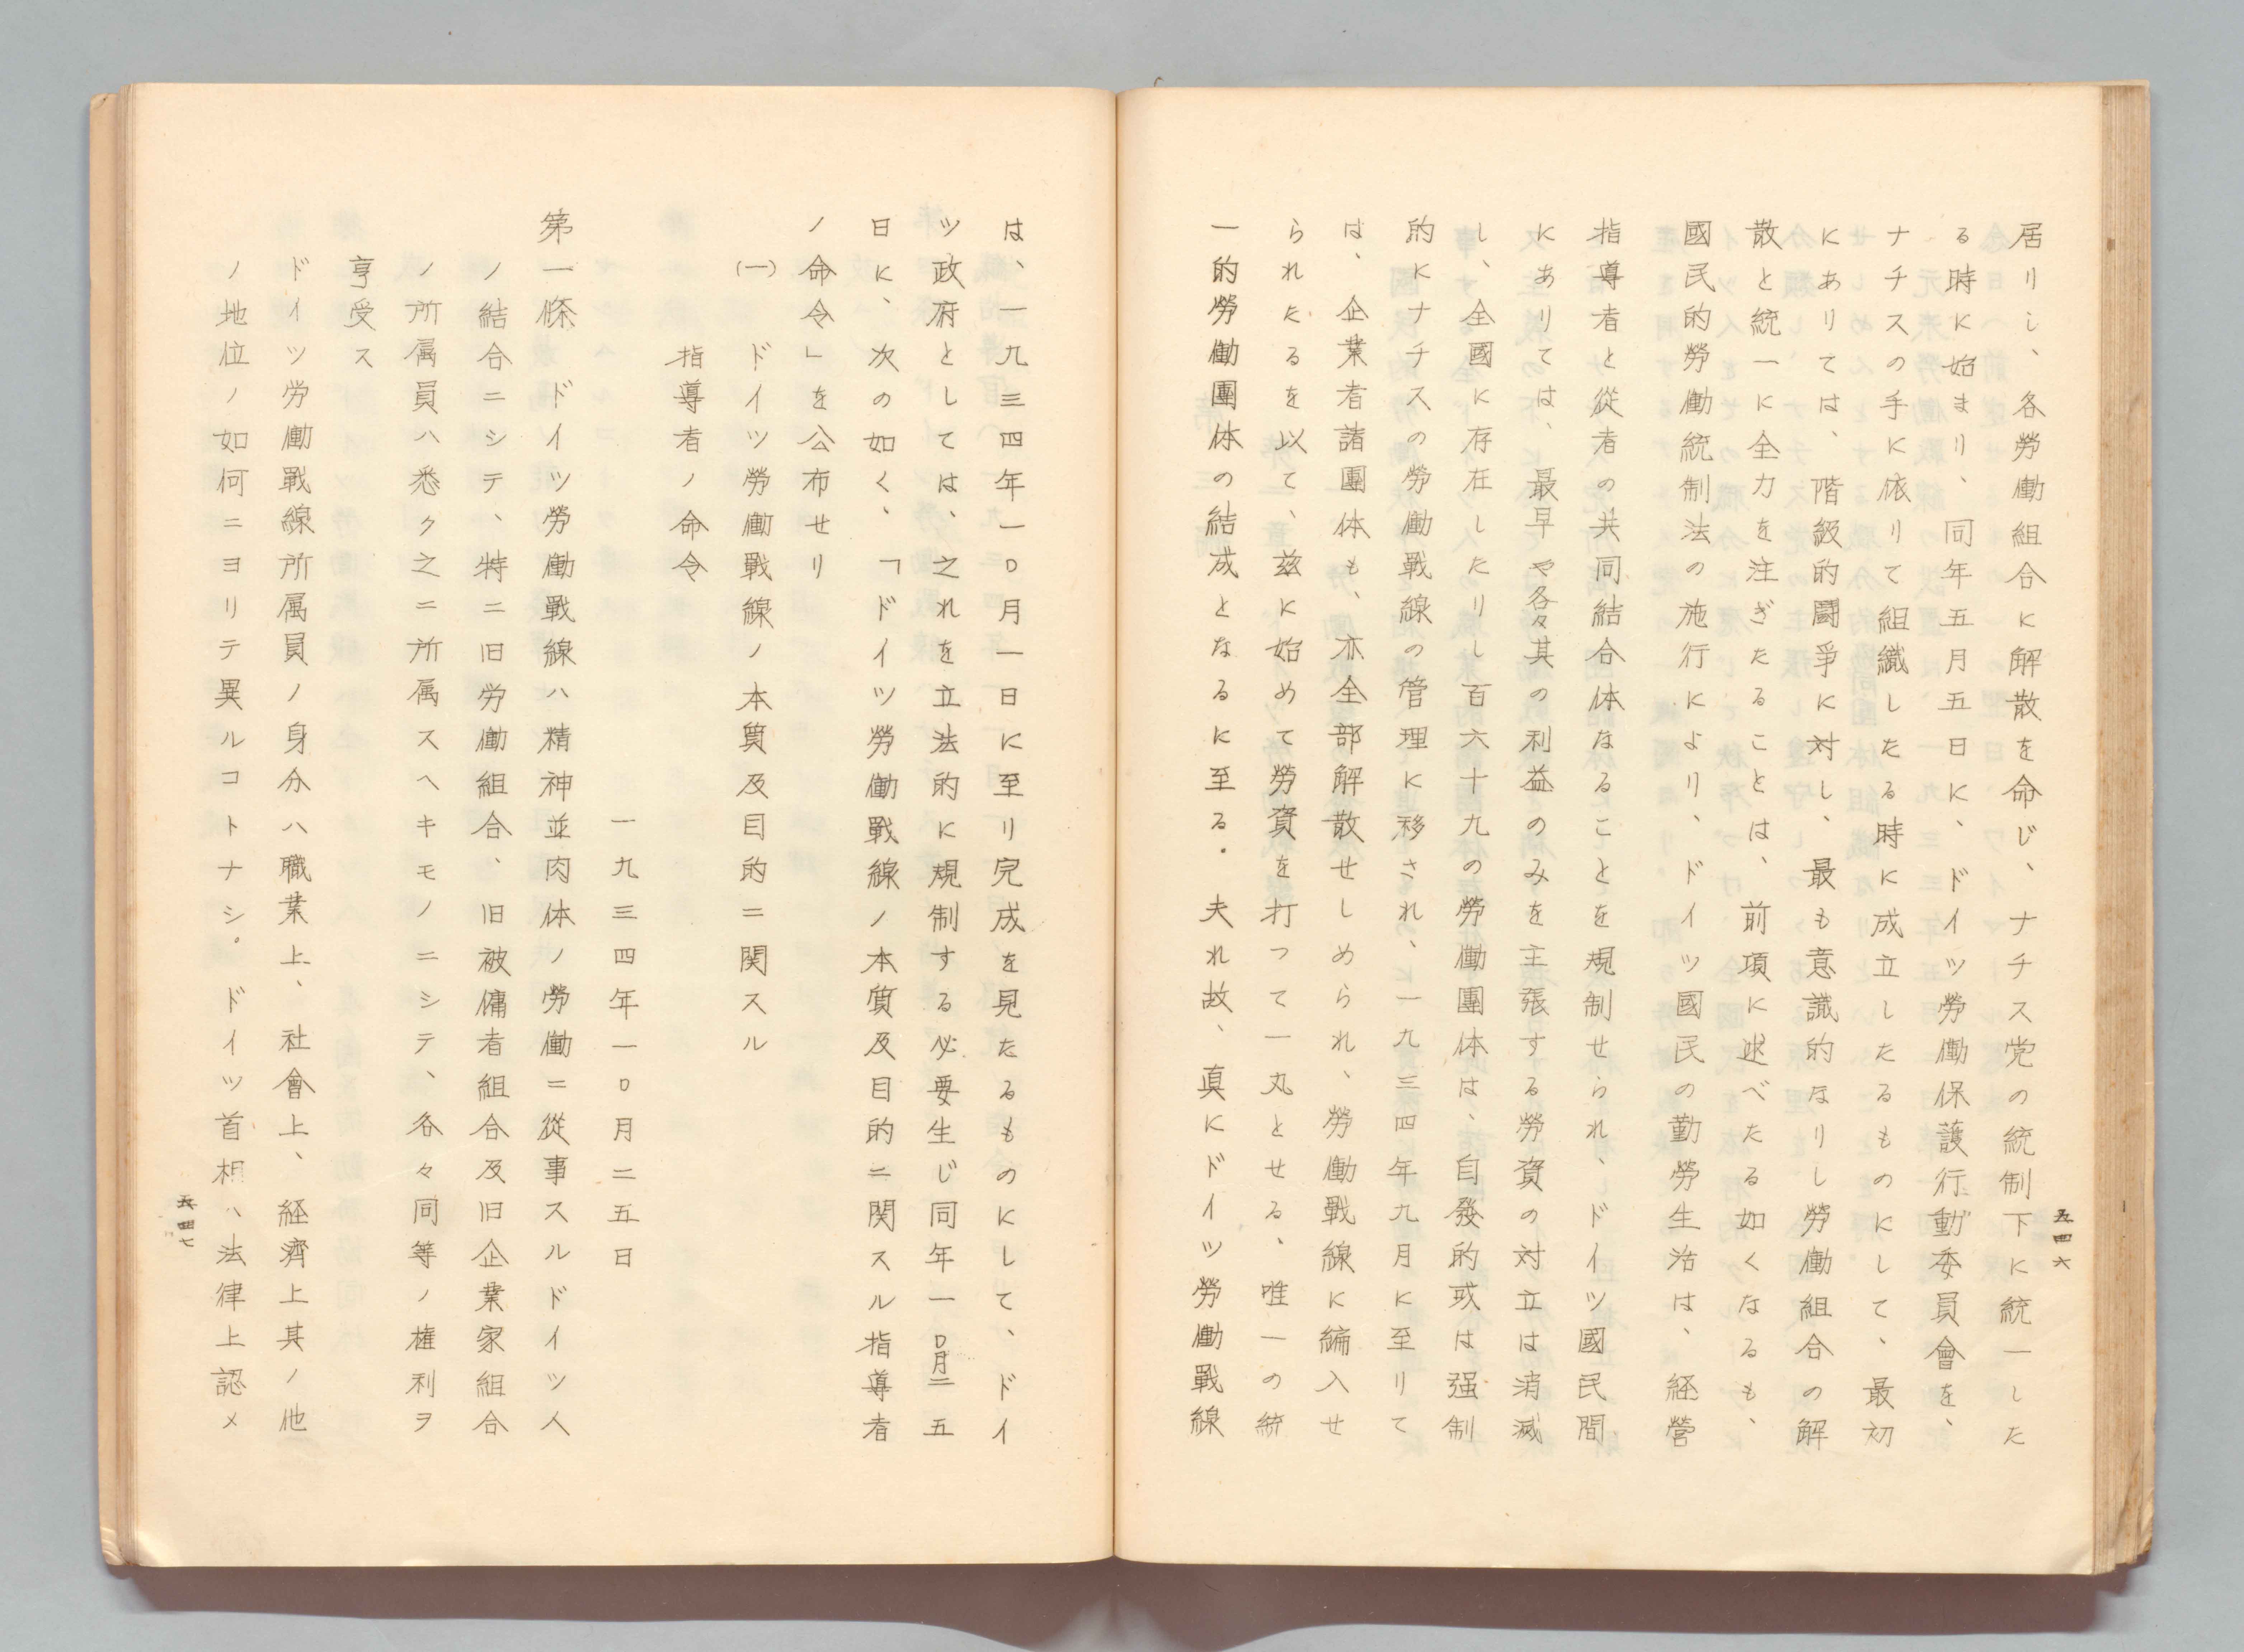 五四六
居りし、各勞働組合に解散を命じ、ナチス党の統制下に統一した
る時に始まり、同年五月五日に、ドイツ勞働保護行動委員會を、
ナチスの手に依りて組織したる時に成立したるものにして、最初
にありては、階級的闘爭に対し、最も意識的なりし勞働組合の解
散と統一に全力を注ぎたることは、前項に述べたる如くなるも、
國民的勞働統制法の施行により、ドイツ國民の勤勞生活は、経營
指導者と從者の共同結合体なることを規制せられ、ドイツ國民間
にありては、最早や各々其の利益のみを主張する勞資の対立は消滅
し、全國に存在したりし百六十九の勞働團体は、自發的或は强制
的にナチスの勞働戰線の管理に移され、一九三四年九月に至りて
は、企業者諸團体も、亦全部解散せしめられ、勞働戰線に編入せ
られたるを以て、玆に始めて勞資を打つて一丸とせる、唯一の統
一的勞働團体の結成となるに至る。夫れ故、真にドイツ勞働戰線
は、一九三四年一〇月一日に至り完成を見たるものにして、ドイ
ツ政府としては、之れを立法的に規制する必要生じ同年一〇月二五
日に、次の如く、「ドイツ勞働戰線ノ本質及目的ニ関スル指導者
ノ命令」を公布せり
(一)ドイツ勞働戰線ノ本質及目的ニ関スル
指導者ノ命令
一九三四年一〇月二五日
第一條 ドイツ勞働戰線ハ精神並肉体ノ勞働ニ從事スルドイツ人
ノ結合ニシテ、特ニ旧労働組合、旧被傭者組合及旧企業家組合
ノ所属員ハ悉ク之ニ所属スヘキモノニシテ、各々同等ノ権利ヲ
亨受ス
ドイツ労働戰線所属員ノ身分ハ職業上、社會上、経濟上其ノ他
ノ地位ノ如何ニヨリテ異ルコトナシ。ドイツ首相ハ法律上認メ
五四七